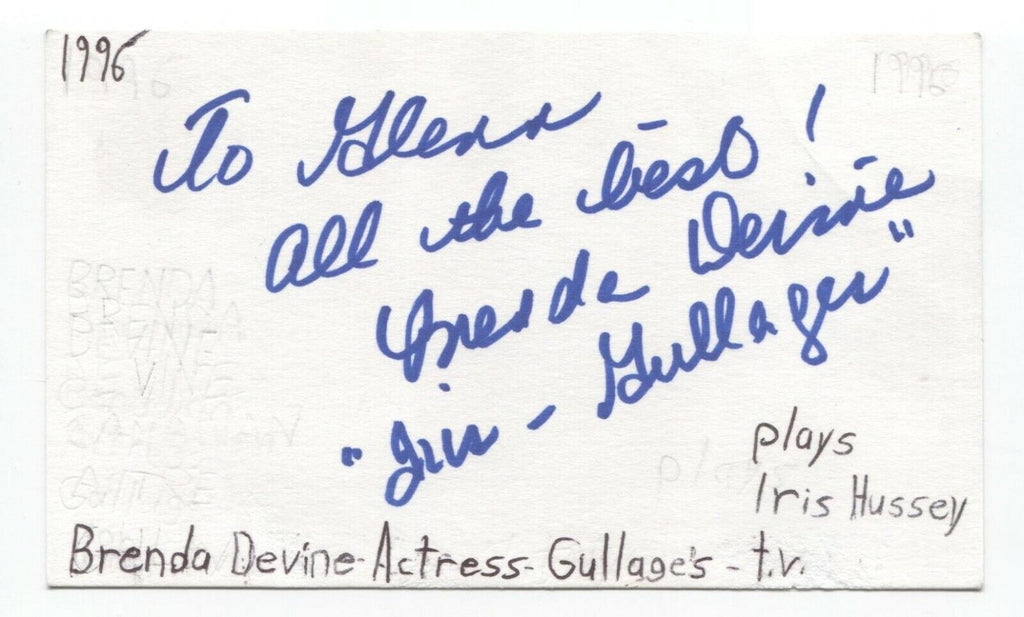 1996
To Glenn
All the best!
Brenda Devine
"Iris - Gullages"
plays
Iris Hussey
Brenda Devine-Actress-Gullage's - t.v.
BRENDA
DEVINE